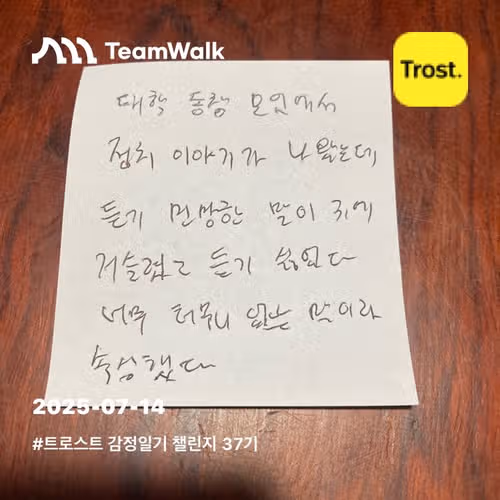 TeamWalk
Trost.
대학 동창 모임에서
정치 이야기가 나왔는데
듣기 민망한 말이 귀에
거슬렸고 듣기 싫었다
너무 터무니 없는 말이라
속상했다
2025-07-14
#트로스트 감정일기 챌린지 37기